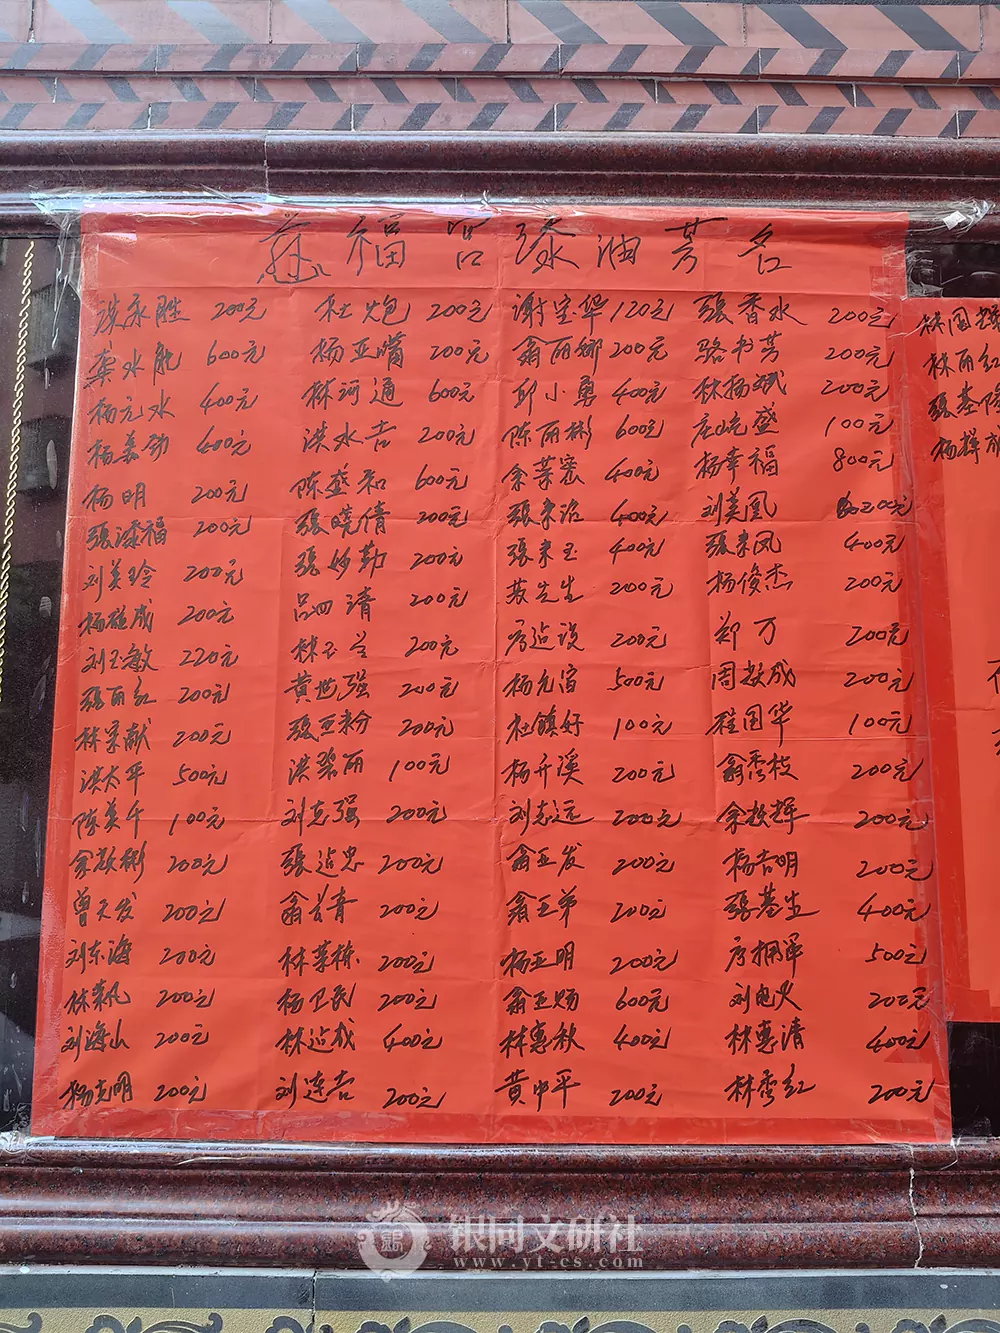 慈福宫添油芳名
洪永胜 200元 杜炮 200元 谢宝华 120元 張香水 200元 林国辉
龚水龍 600元 杨亚嘴 200元 翁丽娜 200元 骆书芳 200元 林丽红
杨元水 400元 林河通 600元 邱小勇 400元 林杨斌 200元 張基
杨美劲 400元 洪水吉 200元 陈丽彬 600元 庄 盛 100元 杨輝成
杨明 200元 陈盛和 600元 余荣宗 400元 杨幸福 800元
張添福 200元 張晓倩 200元 張来治 400元 刘美凤 200元
刘美玲 200元 張妙勤 200元 張来玉 400元 張来凤 400元
杨碰成 200元 吕四清 200元 苏先生 200元 杨俊杰 200元
刘玉敏 220元 林玉 200元 200元 郑万 200元
張丽红 200元 黄世强 200元 杨允富 500元 周赦成 200元
林荣献 200元 張亚粉 200元 杜镇好 100元 程国华 100元
洪太平 500元 洪碧丽 100元 杨升溪 200元 翁秀枝 200元
陈美午 100元 刘志强 200元 刘志远 200元 余敖辉 200元
余敖彬 200元 張沾忠 200元 翁亚发 200元 杨吉明 200元
曾天发 200元 翁长青 200元 翁亚弟 200元 張基生 400元
刘东海 200元 林荣栋 200元 杨亚明 200元 500元
林荣帆 200元 杨卫民 200元 翁亚赐 600元 刘电火 200元
刘海山 200元 林沾成 400元 林惠秋 400元 林惠清 400元
杨克明 200元 刘连吉 200元 黄中平 200元 林秀红 200元
银同文研社
www.yt-cs.com